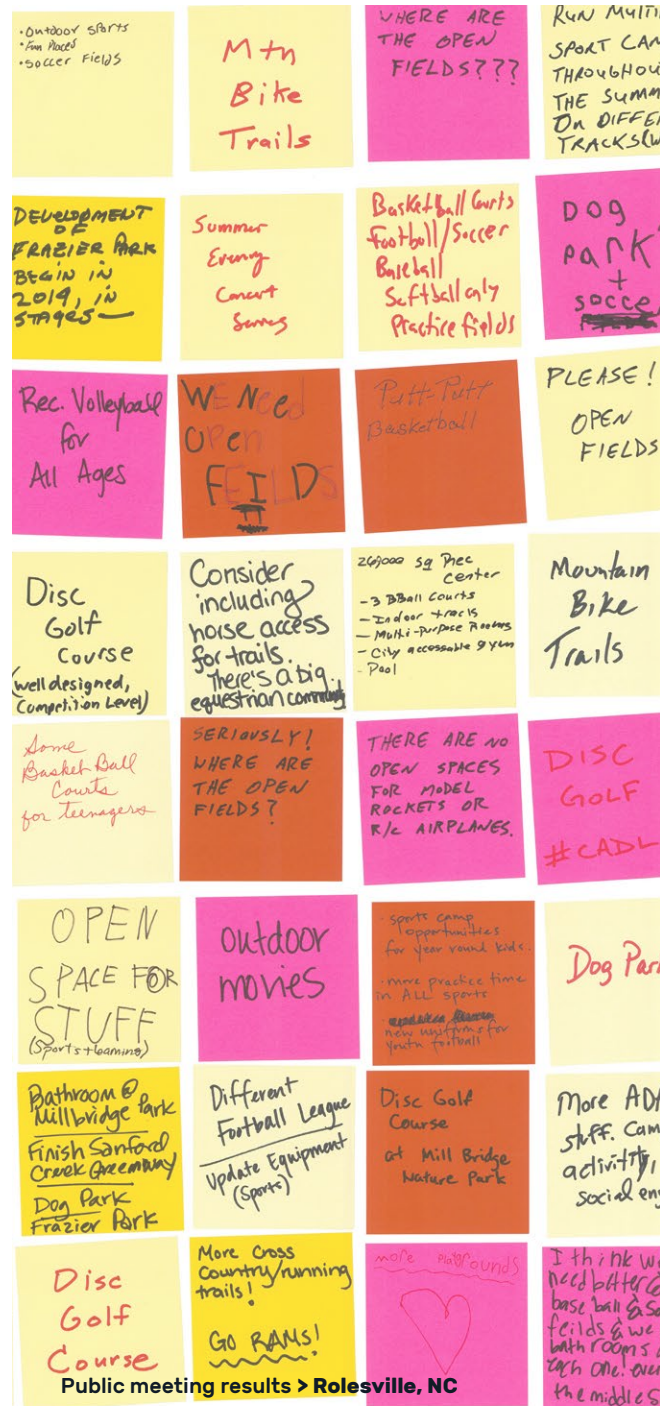 • Outdoor sports
• Fun Places
• Soccer Fields
Mtn
Bike
Trails
WHERE ARE
THE OPEN
FIELDS???
RUN MULTI
SPORT CAM
THROUGHOU
THE SUMM
ON DIFFE
TRACKS(W
DEVELOPMENT
OF
FRAZIER PARK
BEGIN IN
2014, IN
STAGES —
Summer
Evening
Concert
Series
Basketball Courts
Football/Soccer
Baseball
Softball only
Practice fields
DOG
PARK
+
socce
Rec. Volleyball
for
All Ages
WE Need
OPen
FEILDS
Putt-Putt
Basketball
PLEASE!
OPEN
FIELDS
Disc
Golf
Course
(well designed,
Competition Level)
Consider
including
horse access
for trails.
There's a big
equestrian community
sq Rec
Center
- 3 BBall Courts
- Indoor track
- Multi-Purpose Rooms
- City accessable gym
- Pool
Mountain
Bike
Trails
Some
Basket Ball
Courts
for teenagers
SERIOUSLY!
WHERE ARE
THE OPEN
FIELDS?
THERE ARE NO
OPEN SPACES
FOR MODEL
ROCKETS OR
R/C AIRPLANES.
DISC
GOLF
#CADL
OPEN
SPACE FOR
STUFF
(Sports + teaming)
outdoor
movies
· sports camp
opportunities
for year round kids.
· more practice time
in ALL sports
new uniforms for
youth football
Dog Par
Bathroom @
Millbridge Park
Finish Sanford
Creek Greenway
Dog Park
Frazier Park
Different
Football League
Update Equipment
(Sports)
Disc Golf
Course
at Mill Bridge
Nature Park
More AD
stuff. Cam
activitiy,
social en
Disc
Golf
Course
More Cross
Country/running
trails!
GO RAMS!
more playgrounds
I think w
need better
base ball & So
feilds & we
bathrooms
each one. over
the middle S
Public meeting results > Rolesville, NC